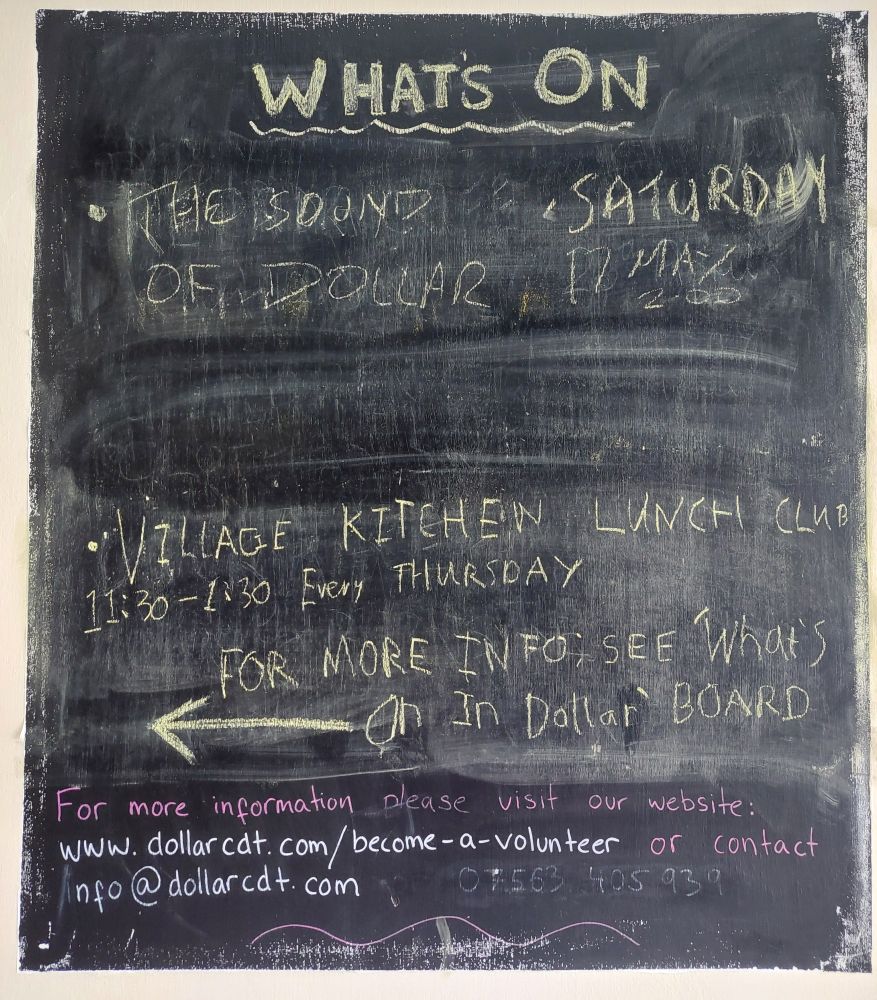 WHAT'S ON
• THE SOUND SATURDAY
OF DOLLAR 17 MAY
2:00
• VILLAGE KITCHEN LUNCH CLUB
11:30-1:30 Every THURSDAY
FOR MORE INFO; SEE 'What's
On In Dollar' BOARD
For more information please visit our website:
www.dollarcdt.com/become-a-volunteer or contact
Info@dollarcdt.com 07563 405 939